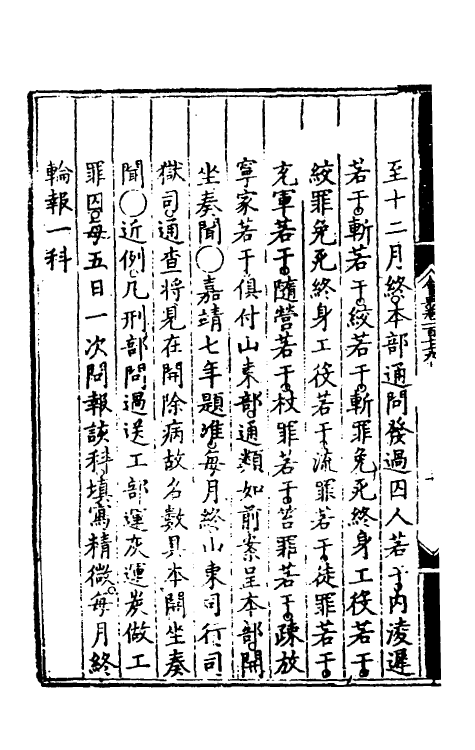 至十二月終本部通問發過囚人若干內淩遲
若干斬若干絞若干斬罪免死終身工役若干
絞罪免死終身工役若干流罪若干徒罪若干
充軍若干隨營若干杖罪若干笞罪若干疎放
寧家若干俱付山東部通類如前案呈本部開
坐奏聞〇嘉靖七年題准每月終山東司行司
獄司通查將見在開除病故名數具本開坐奏
聞〇近例凡刑部問過送工部運灰運炭做工
罪囚每五日一次問報該科填寫精微每月終
輪報一科